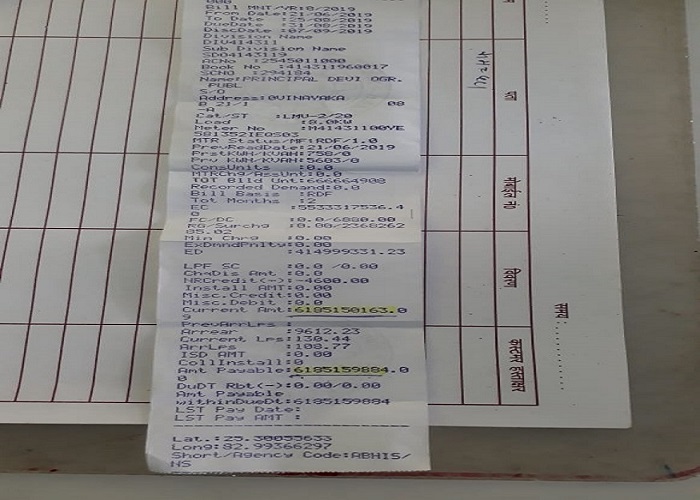 000
Bill MNT/YR:8/2019
From Date:21/06/2019
To Date :25/08/2019
DueDate :31/08/2019
DiscDate:07/09/2019
Division Name
DIV414311
Sub Division Name
SDO4143119
ACNo :2545011000
Book No :414311960017
SCNO :294184
Name:PRINCIPAL DEVI OGR.
PUBL
S/O
Address:0VINAYAKA
B 21/1 08
-A
Cat/ST :LMV-2/20
Load :8.0KW
Meter No :M41431100YE
581352IE0S03
MTR Status/MF:RDF/1.0
PrevReadDate:21/06/2019
PrstKWH/KVAH:758/0
Prv KWH/KVAH:5683/0
ConsUnits :0.0
MTRChg/AssUnt:0.0
TOT Blld Unt:666664908
Recorded Demand:0.0
Bill Basis :RDF
Tot Months :2
EC :5533317536.4
0
FC/DC :0.0/6880.00
RG/Surchg :0.00/2368262
85.02
Min Chrg :0.00
ExDmndPnlty:0.00
ED :414999331.23
LPF SC :0.0 /0.80
ChqDis Amt :0.0
NRCredit(-):-4600.00
Install AMT:0.00
Misc.Credit:0.00
Misc.Debit :0.0
Current Amt:6185150163.0
9
PrevArrLPS :
Arrear :9612.23
Current LPS:130.44
ArrLPS :108.77
ISD AMT :0.00
CollInstall:0
Amt Payable:6185159884.0
0
DuDT Rbt(-):0.00/0.00
Amt Payable
withinDueDt:6185159884
LST Pay Date:
LST Pay AMT :
Lat.:25.30035633
Long:82.99366297
Short/Agency Code:ABHIS/
NS
पता
मोबाईल नं०
विवरण
समय :